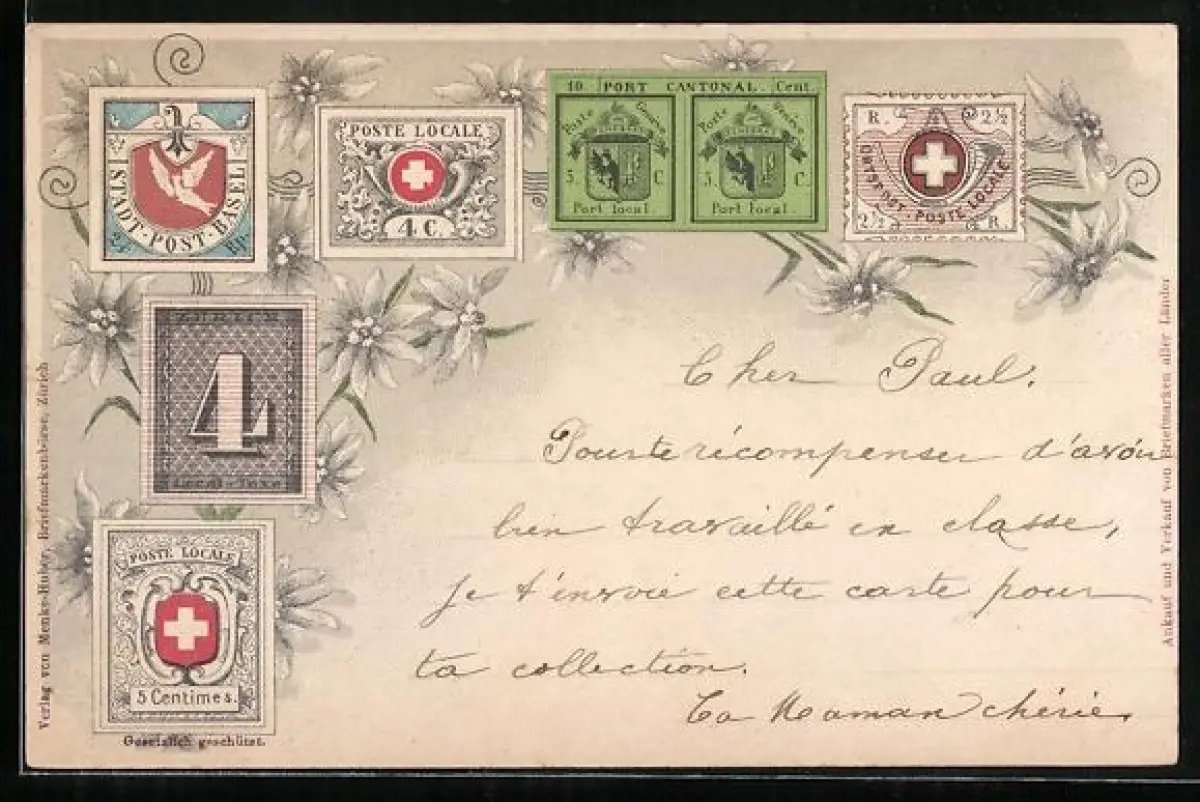 STADT-POST-BASEL
2½ Rp.
POSTE LOCALE
4 C.
10 PORT CANTONAL Cent.
Poste Genève
5 C.
Port local.
Poste Genève
5 C.
Port local.
R. 2½
ORTSPOST·POSTE LOCALE
2½ R.
ZÜRICH
4
Local-Taxe
POSTE LOCALE
5 Centimes.
Gesetzlich geschützt.
Verlag von Menke-Huber, Briefmarkenbörse, Zürich
Ankauf und Verkauf von Briefmarken aller Länder
Cher Paul.
Pour te récompenser d'avoir
bien travaillé en classe,
je t'envoie cette carte pour
ta collection.
Ta Maman chérie.